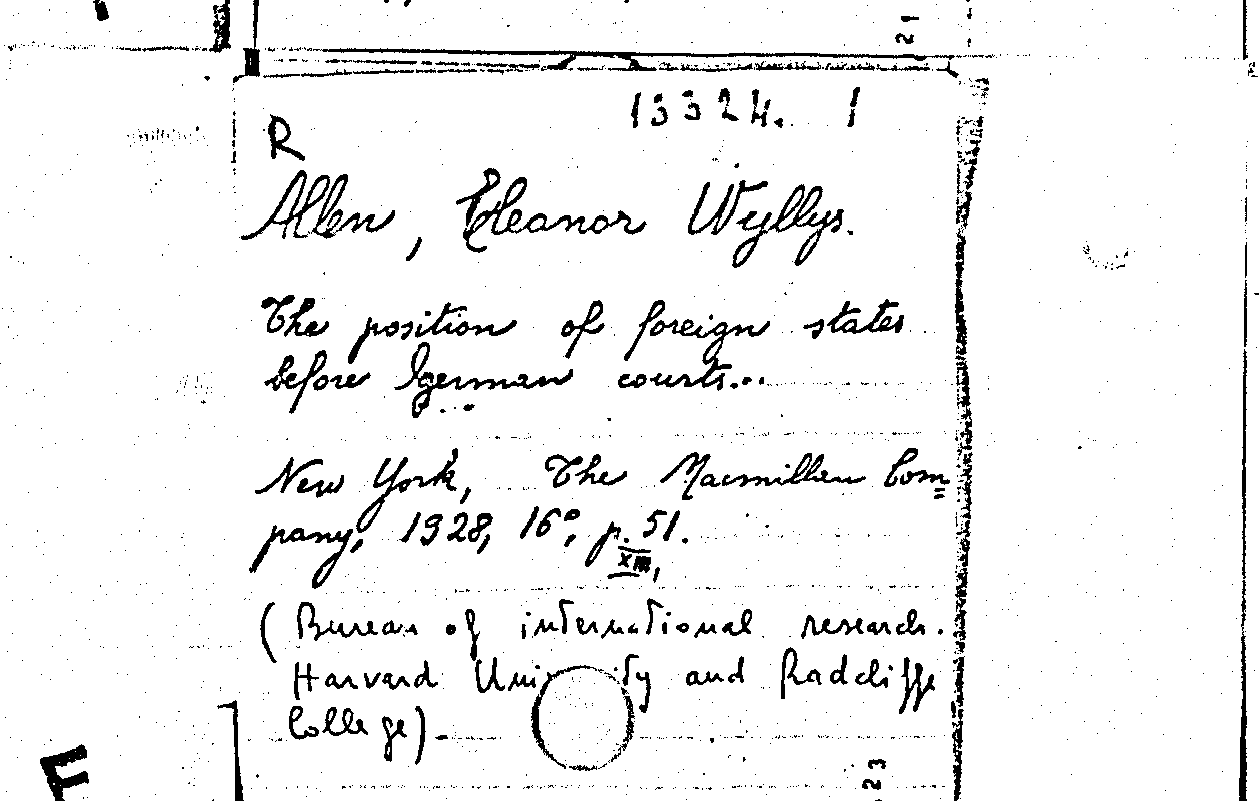 21
13324. 1
R
Allen, Eleanor Wyllys.
The position of foreign states
before German courts...
...
New York, The Macmillan Com=
pany, 1928, 16°, p. 51.
XIII,
(Bureau of international research.
Harvard University and Radcliffe
College).
23